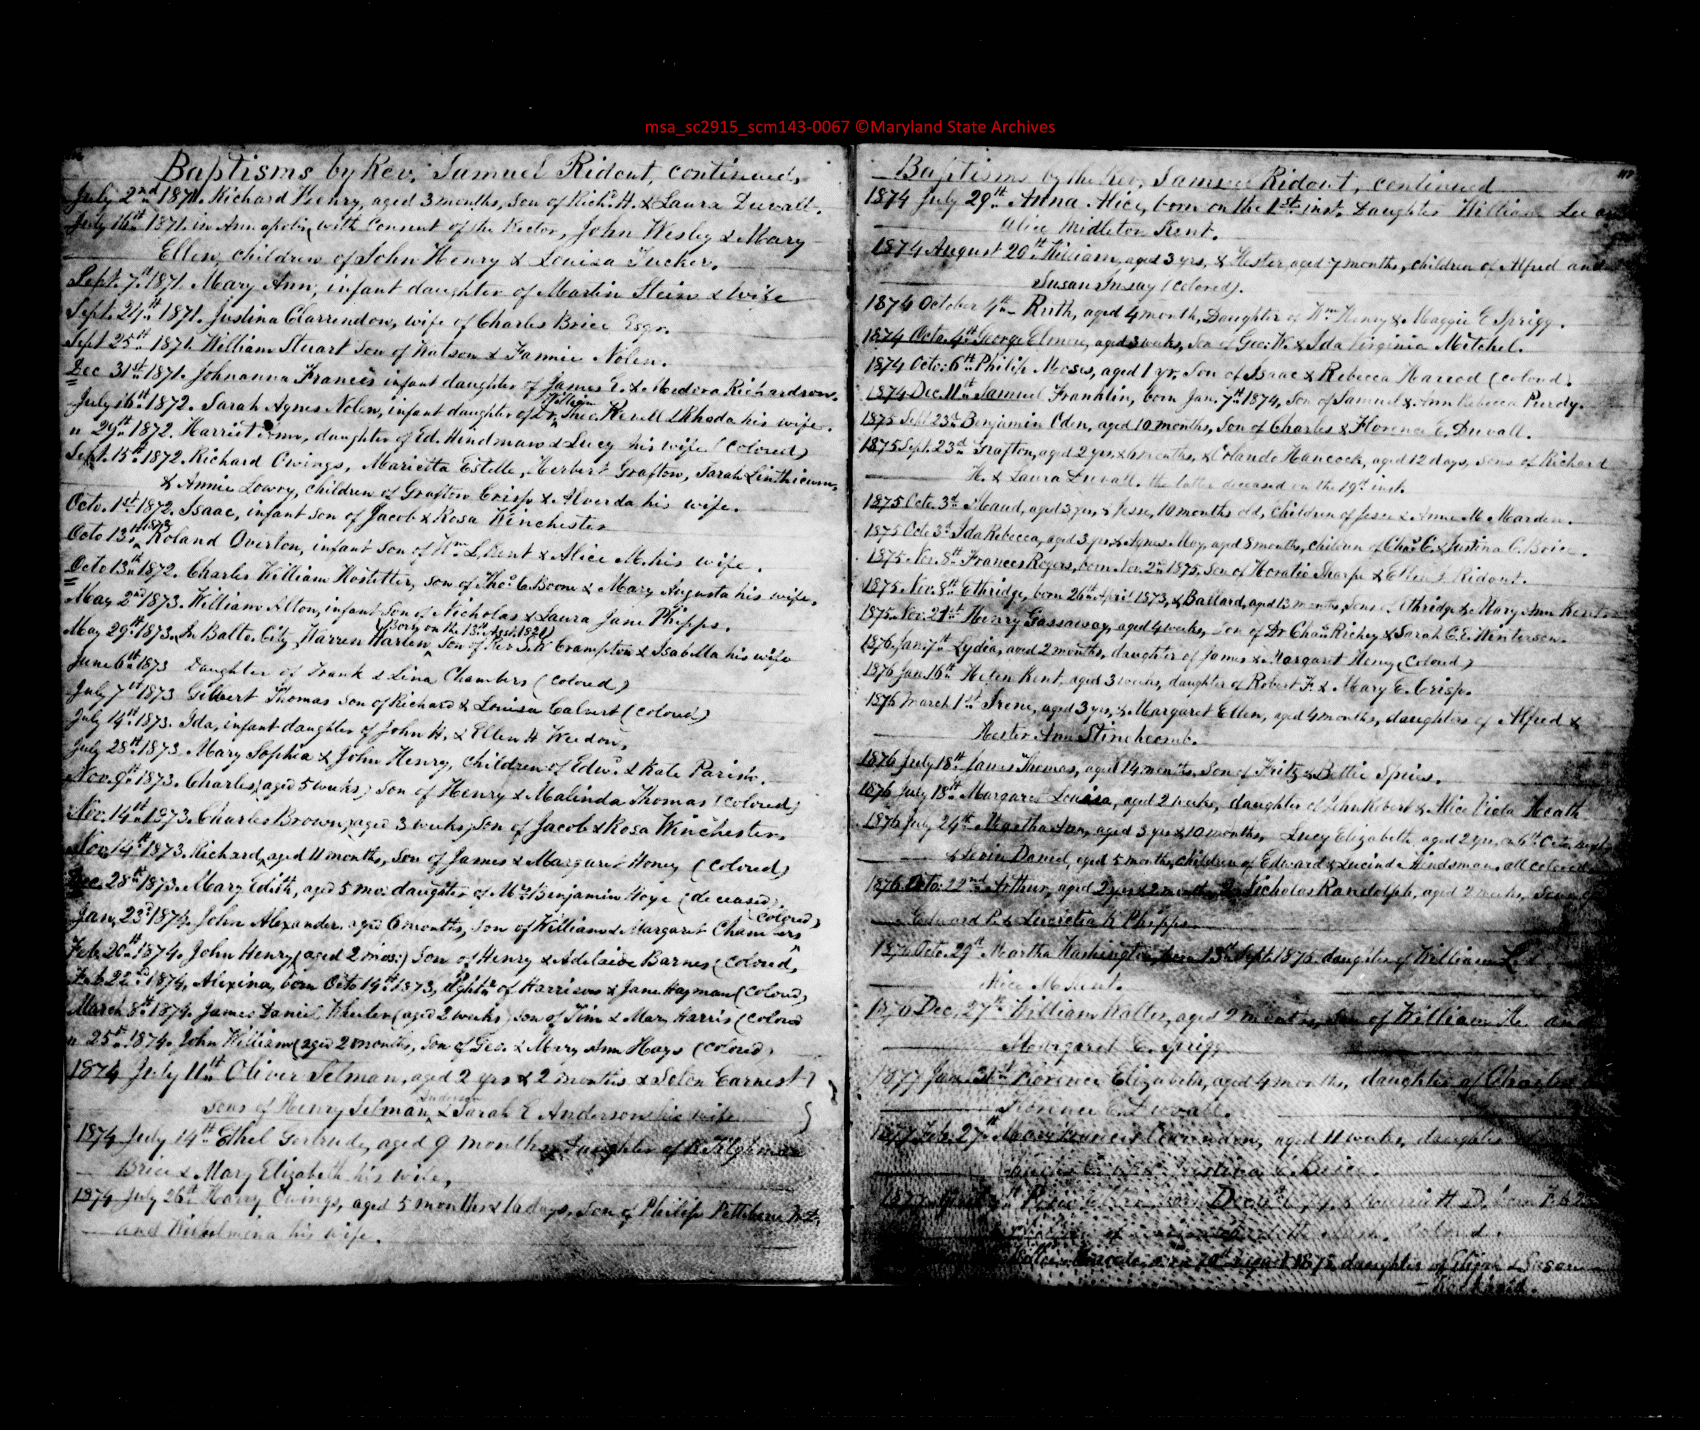 msa_sc2915_scm143-0067 ©Maryland State Archives
Baptisms by Rev. Samuel Ridout, continued,
July 2nd 1871. Richard Henry, aged 3 months, son of Richd. H. & Laura Duvall.
July 16th 1871. in Annapolis, with Consent of the Rector, John Wesley & Mary
Ellen, children of John Henry & Louisa Tucker.
Sept. 7th 1871. Mary Ann, infant daughter of Martin Stein & wife
Sept. 24th 1871. Justina Clarrendon, wife of Charles Brice Esqr.
Sept 25th 1871. William Stuart son of Watson & Fannie Nolen.
Dec 31st 1871. Johnanna Francis infant daughter of James E. & Medora Richardson.
William
July 16th 1872. Sarah Agnes Nolen, infant daughter of Dr. Theo. Revell & Rhoda his wife.
" 29th 1872. Harriet, daughter of Ed. Hindman & Lucy his wife (Colored)
Sept. 15th 1872. Richard Owings, Marietta Estelle, Herbert Grafton, Sarah Linthicum,
& Annie Lowry, children of Grafton Crisp & Alverda his wife.
Octo. 1st 1872. Isaac, infant son of Jacob & Rosa Winchester
1872
Octo 13th Roland Overton, infant son of Wm. L. Kent & Alice M. his wife.
Octo 13th 1872. Charles William Hostetter, son of Thos. C. Boom & Mary Augusta his wife.
May 2nd 1873. William Alton, infant son of Nicholas & Laura Jane Phipps.
(Born on the 13th
May 29th 1873. In Balto. City Warren Harlen, son of Rev S. W. Crampton & Isabella his wife
June 6th 1873 Daughter of Frank & Lina Chambers (Colored)
July 7th 1873 Gilbert Thomas son of Richard & Louisa Calvert (Colored)
July 14th 1873. Ida, infant daughter of John H. & Ellen H Weedon,
July 28th 1873. Mary Sophia & John Henry, Children of Edwd. & Kate Parish.
Nov. 9th 1873. Charles, (aged 5 weeks) son of Henry & Malinda Thomas (colored)
Nov. 14th 1873. Charles Brown, aged 3 weeks, son of Jacob & Rosa Winchester.
Nov 14th 1873. Richard, aged 11 months, son of James & Margaret Honey (Colored)
Dec. 28th 1873. Mary Edith, aged 5 mo: daughter of Mrs. Benjamin Hoye (deceased)
colored)
Jan. 23d 1874. John Alexander, aged 6 months, son of William & Margaret Chambers
Feb. 20th 1874. John Henry (aged 2 mos:) son of Henry & Adelaide Barnes (Colored)
Feb 22nd 1874, Alexina, born Octo 19th 1873, dghtr. of Harrison & Jane Hayman (Colored)
March 8th 1874. James Daniel Wheeler (aged 2 weeks) son of Jim & Mary Harris (Colored
" 25th 1874. John William (aged 2 months, Son of Geo. & Mary Ann Hays (Colored)
1874 July 11th Oliver Selman, aged 2 yrs & 2 months & Selon Earnest
Anderson
sons of Henry Selman & Sarah E Anderson his wife
1874 July 14th Ethel Gertrude, aged 9 months, daughter of R. Tilghman
Brice & Mary Elizabeth his wife,
1874 July 26th Harry Owings, aged 5 months & 16 days, son of Philip Pettebone
and Wilhelmina his wife.
Baptisms by the Rev. Samuel Ridout, continued
1874 July 29th Anna Alice, born on the 1st inst. Daughter William Lee and
Alice Midleton Kent.
1874 August 20th William, aged 3 yrs, & Hester, aged 7 months, children of Alfred and
Susan (colored).
1874 October 4th Ruth, aged 4 month, Daughter of Wm Henry & Maggie E Sprigg.
1874 Octo. 4th George Elmer, aged 3 weeks, son of Geo: W. & Ida Virginia Mitchel.
1874 Octo: 6th Philip Moses, aged 1 yr, Son of Isaac & Rebecca Harrod (colored)
1874 Dec 11th Samuel Franklin, born Jan. 7th 1874, Son of Samuel & Ann Rebecca Purdy.
1875 Sept 23d Benjamin Oden, aged 10 months, son of Charles & Florence E. Duvall.
1875 Sept. 23d Grafton, aged 2 yrs & 6 months, & Orlando Hancock, aged 12 days, sons of Richard
H. & Laura Duvall. the latter deceased on the 19th inst.
1875 Octo. 3d Maud, aged 3 yrs, & Jesse, 10 months old, Children of Jesse & Anne M. Marden.
1875 Octo 3d Ida Rebecca, aged 3 yrs, & Agnes May, aged 8 months, children of Chas. C. & Justina C. Brice.
1875. Nov. 8th Frances Rogers, born Nov. 2nd 1875, Son of Horatio Sharpe & Ellen Ridout.
1875 Nov. 8th Ethridge, born 26th April 1873, & Ballard, aged 13 months, sons Ethridge & Mary Ann Kent
1875 Nov. 21st Henry Gassaway, aged 4 weeks, Son of Dr Chas. Richey & Sarah C. E. Winterson.
1876 Jan 7th Lydia, aged 2 months, daughter of James & Margaret Honey (Colored)
1876 Jan 16th Helen Kent, aged 3 weeks, daughter of Robert F. & Mary E. Crisp.
1876 March 1st Irene, aged 3 yrs, & Margaret Ellen, aged 4 months, daughters of Alfred &
Hester Ann Stinchcomb.
1876 July 18th James Thomas, aged 14 months, Son of Fritz & Bettie Spies.
1876 July 18th Margaret Louisa, aged 2 weeks, daughter of John Robert & Alice Viola Heath
1876 July 24th Martha Ann, aged 3 yrs & 10 months, Lucy Elizabeth, aged 2 yrs, on 6th Octo.
& Levin Daniel, aged 5 months, children of Edward & Lucinda Hindsman, all colored
1876 Octo. 22nd Arthur, aged 2 yrs & 2 months & Nicholas Randolph, aged 2 weeks, Sons of
Edward P. & Lucretia K Phipps.
1876 Octo. 29th Martha Washington, born 13th Sept 1876 daughter of William L. &
Alice M. Kent.
1876 Dec, 27th William Walter, aged 2 months, son of William H. and
Margaret E. Sprigg
1877 Jan. 31st Florence Elizabeth, aged 4 months, daughter of Charles
Florence E. Duvall.
1877 Feb. 27th Mary Frances Clarendon, aged 11 weeks, daughter
Justina C. Brice.
Harriet D. born Feb
Colored.
born 20th August 1875, daughter of Elijah & Susan